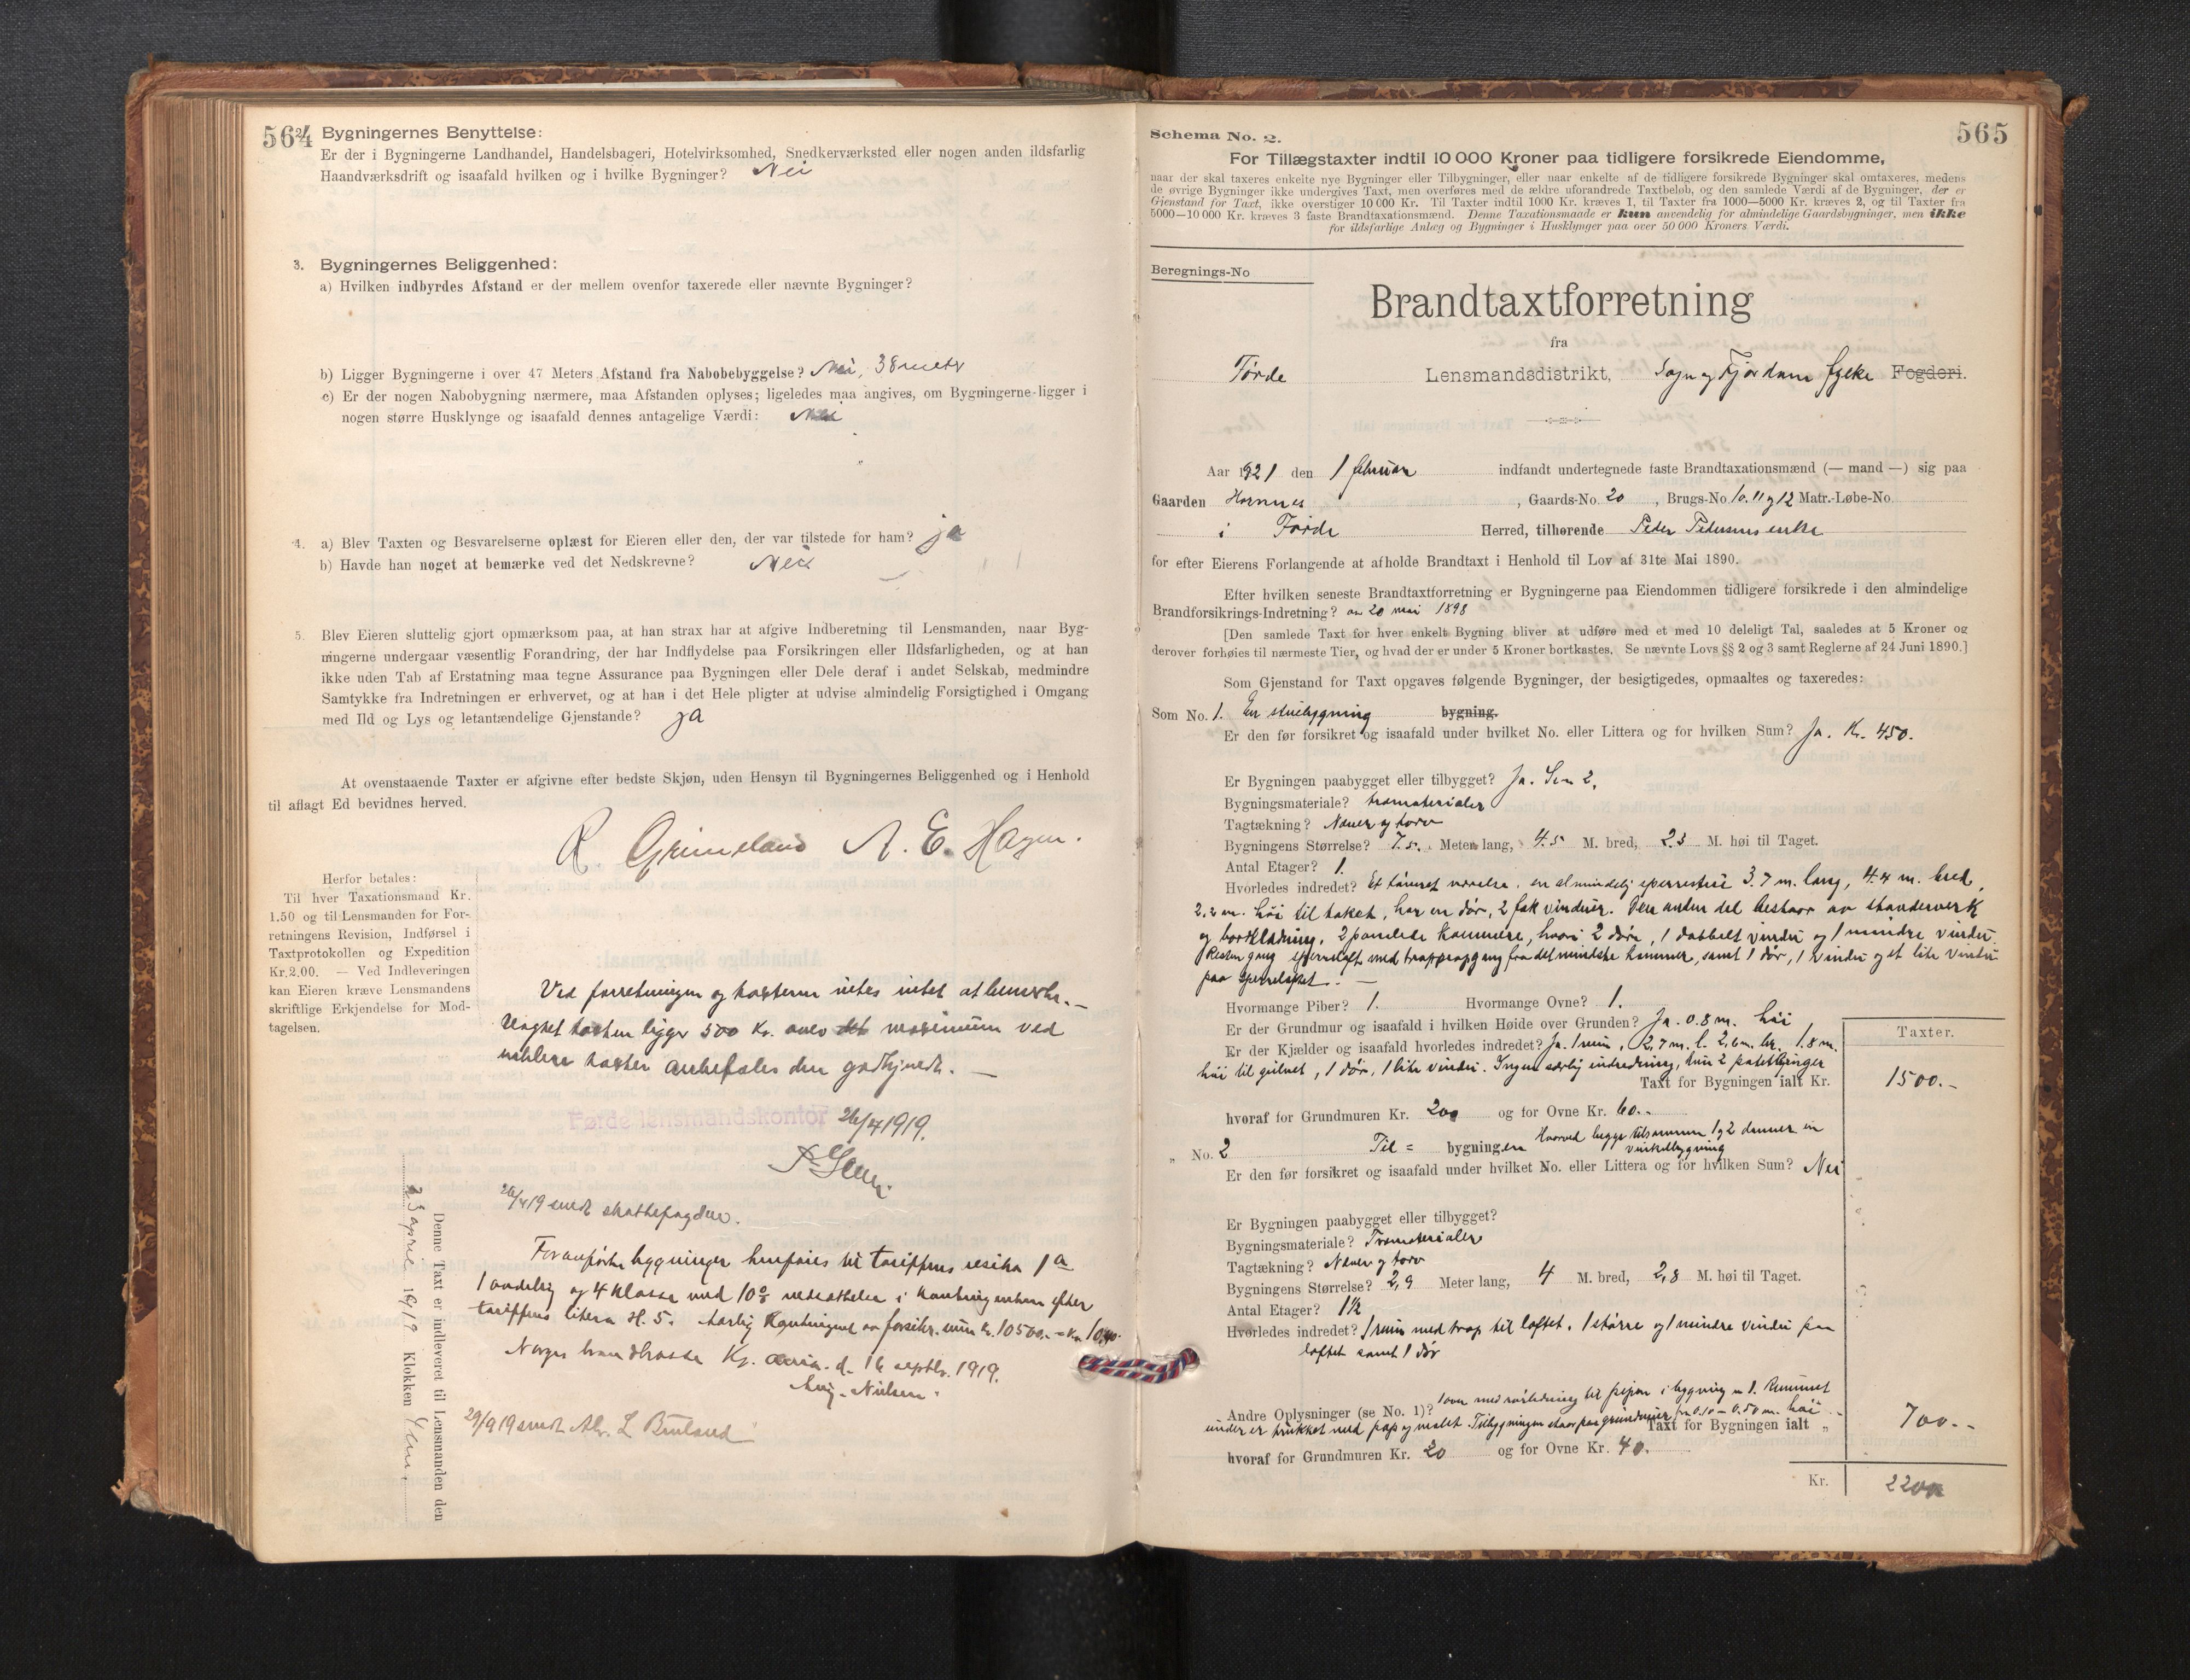 564
2. Bygningernes Benyttelse:
Er der i Bygningerne Landhandel, Handelsbageri, Hotelvirksomhed, Snedkerværksted eller nogen anden ildsfarlig
Haandværksdrift og isaafald hvilken og i hvilke Bygninger? Nei
3. Bygningernes Beliggenhed:
a) Hvilken indbyrdes Afstand er der mellem ovenfor taxerede eller nævnte Bygninger?
b) Ligger Bygningerne i over 47 Meters Afstand fra Nabobebyggelse? Nei, 38 meter
c) Er der nogen Nabobygning nærmere, maa Afstanden oplyses; ligeledes maa angives, om Bygningerne ligger i
nogen større Husklynge og isaafald dennes antagelige Værdi: Nei
4. a) Blev Taxten og Besvarelserne oplæst for Eieren eller den, der var tilstede for ham? ja
b) Havde han noget at bemærke ved det Nedskrevne? Nei
5. Blev Eieren sluttelig gjort opmærksom paa, at han strax har at afgive Indberetning til Lensmanden, naar Byg-
ningerne undergaar væsentlig Forandring, der har Indflydelse paa Forsikringen eller Ildsfarligheden, og at han
ikke uden Tab af Erstatning maa tegne Assurance paa Bygningen eller Dele deraf i andet Selskab, medmindre
Samtykke fra Indretningen er erhvervet, og at han i det Hele pligter at udvise almindelig Forsigtighed i Omgang
med Ild og Lys og letantændelige Gjenstande? ja
At ovenstaaende Taxter er afgivne efter bedste Skjøn, uden Hensyn til Bygningernes Beliggenhed og i Henhold
til aflagt Ed bevidnes herved.
R. Grimeland A. E. Hagen.
Herfor betales:
Til hver Taxationsmand Kr.
1.50 og til Lensmanden for For-
retningens Revision, Indførsel i
Taxtprotokollen og Expedition
Kr.2.00. — Ved Indleveringen
kan Eieren kræve Lensmandens
skriftlige Erkjendelse for Mod-
tagelsen.
Ved forretningen og taksterne vites intet at bemerke. —
Uagtet taksten ligger 500 Kr. over det maximum ved
takster anbefales den godkjendt. —
Førde lensmandskontor 26/4 1919.
26/4 19 sendt skattefogden.
Foranførte bygninger henføres til tariffens risiko 1a
1 aadelig og 4 klasse med 10% nedsættelse i kontingenten efter
tariffens litera H. 5. Aarlig kontingent av forsikr. sum kr. 10500.- = kr. 10,40.
Norges brandkasse Kr.ania d. 16 septbr. 1919.
Aug. Nielsen.
29/9 19 sendt
Denne Taxt er indleveret til Lensmanden den
23 april 1919 Klokken 4 em.
565
Schema No. 2.
For Tillægstaxter indtil 10 000 Kroner paa tidligere forsikrede Eiendomme,
naar der skal taxeres enkelte nye Bygninger eller Tilbygninger, eller naar enkelte af de tidligere forsikrede Bygninger skal omtaxeres, medens
de øvrige Bygninger ikke undergives Taxt, men overføres med de ældre uforandrede Taxtbeløb, og den samlede Værdi af de Bygninger, der er
Gjenstand for Taxt, ikke overstiger 10 000 Kr. Til Taxter indtil 1000 Kr. kræves 1, til Taxter fra 1000—5000 Kr. kræves 2, og til Taxter fra
5000—10 000 Kr. kræves 3 faste Brandtaxationsmænd. Denne Taxationsmaade er kun anvendelig for almindelige Gaardsbygninger, men ikke
for ildsfarlige Anlæg og Bygninger i Husklynger paa over 50 000 Kroners Værdi.
Beregnings-No
Brandtaxtforretning
fra
Førde Lensmandsdistrikt, Sogn og Fjordane fylke Fogderi.
Aar 1921 den 1 februar indfandt undertegnede faste Brandtaxationsmænd (— mand —) sig paa
Gaarden Hornnes, Gaards-No. 20, Brugs-No 10. 11 og 12 Matr.-Løbe-No.
i Førde Herred, tilhørende Peder Pedersens enke
for efter Eierens Forlangende at afholde Brandtaxt i Henhold til Lov af 31te Mai 1890.
Efter hvilken seneste Brandtaxtforretning er Bygningerne paa Eiendommen tidligere forsikrede i den almindelige
Brandforsikrings-Indretning? av 20 mai 1898
[Den samlede Taxt for hver enkelt Bygning bliver at udføre med et med 10 deleligt Tal, saaledes at 5 Kroner og
derover forhøies til nærmeste Tier, og hvad der er under 5 Kroner bortkastes. Se nævnte Lovs §§ 2 og 3 samt Reglerne af 24 Juni 1890.]
Som Gjenstand for Taxt opgaves følgende Bygninger, der besigtigedes, opmaaltes og taxeredes:
Som No. 1. En stuebygning bygning.
Er den før forsikret og isaafald under hvilket No. eller Littera og for hvilken Sum? Ja. Kr. 450.
Er Bygningen paabygget eller tilbygget? Ja. Se no 2.
Bygningsmateriale? træmaterialer
Tagtækning? Næver og torv
Bygningens Størrelse? 7.5. Meter lang, 4.5 M. bred, 2.3 M. høi til Taget.
Antal Etager? 1.
Hvorledes indredet? Et tømret værelse. en almindelig sperrestue 3.7 m. lang, 4.4 m. bred,
2,2 m. høi til taket, har en dør, 2 fak vinduer. Den anden del bestaar av standerverk
og bordklædning. 2 panelede kammere, hvori 2 døre, 1 dobbelt vindu og 1 mindre vindu.
Resten gang sperreloft med trappeopgang fra det mindste kammer, samt 1 dør, 1 vindu og et lite vindu
paa sperreloftet. —
Hvormange Piber? 1. Hvormange Ovne? 1.
Er der Grundmur og isaafald i hvilken Høide over Grunden? Ja. 0.8 m. høi
Er der Kjælder og isaafald hvorledes indredet? Ja. 1 rum, 2,7 m. l. 2,6 m. br. 1.8 m.
høi til gulvet, 1 dør, 1 lite vindu. Ingen særlig indredning, kun 2 potetbinger
Taxter.
Taxt for Bygningen ialt Kr. 1500.-
hvoraf for Grundmuren Kr. 200 og for Ovne Kr. 60.-
„ No. 2 Til = bygningen Hvorved begge tilsammen 1 og 2 danner en
vinkelbygning
Er den før forsikret og isaafald under hvilket No. eller Littera og for hvilken Sum? Nei
Er Bygningen paabygget eller tilbygget?
Bygningsmateriale? Træmaterialer
Tagtækning? Næver og torv
Bygningens Størrelse? 2,9 Meter lang, 4 M. bred, 2,8 M. høi til Taget.
Antal Etager? 1½
Hvorledes indredet? 1 rum med trap til loftet. 1 større og 1 mindre vindu paa
loftet samt 1 dør
Andre Oplysninger (se No. 1)? 1 ovn med rørledning til pipen i bygning no 1. Rummet
under er trukket med pap og malet. Tilbygningen staar paa grundmur fra 0.10 — 0.50 m. høi
Taxt for Bygningen ialt „ 700.-
hvoraf for Grundmuren Kr. 20 og for Ovne Kr. 40.
Kr. 2200